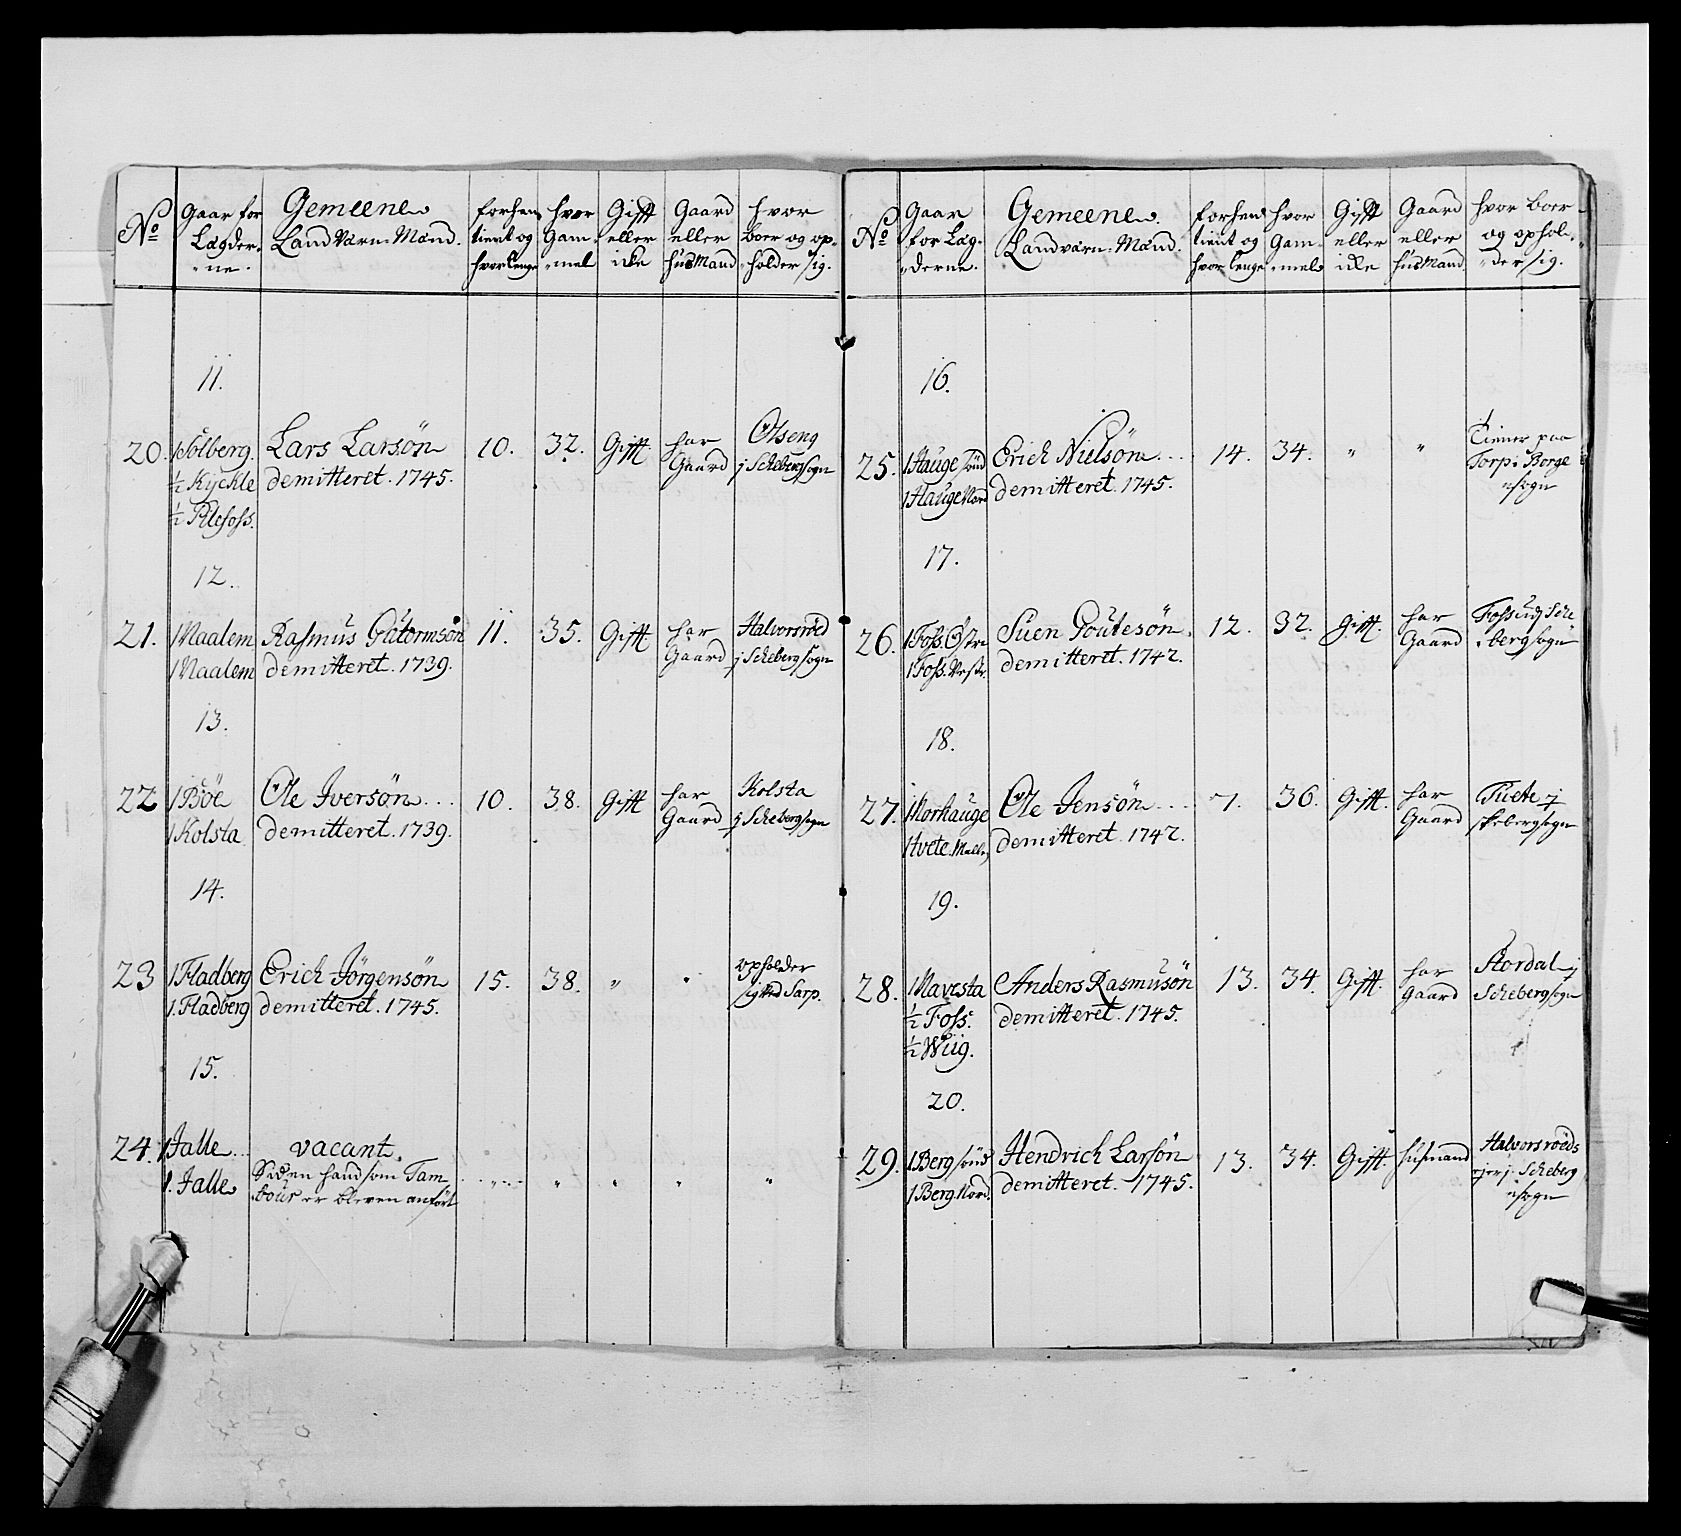 No
Gaar for
Lægder-
ne.
Gemeene
Land Værn-Mænd.
forhen
tient og
hvor lenge
hvor
Gam-
mel
Gift
eller
icke
Gaard
eller
huusMand
hvor
boer og op-
holder sig.
11.
20.
1 Solberg.
½ Kyckle
½ Pilefoss.
Lars Larsøn
demitteret. 1745.
10.
32.
Gift
har
Gaard
Olseng
j Schebergsogn
12.
21.
1 Naalem
1 Naalem
Rasmus Gutormsøn
demitteret. 1739.
11.
35.
Gift
har
Gaard
Halvorsrøed
j Scheberg sogn
13.
22
1 Böe
1 Kolsta
Ole Iversøn
demitteret. 1739.
10.
38.
Gift
har
Gaard
Kolsta
j Schebergsogn
14.
23
1 Fladberg
1. Fladberg
Erich Jörgensøn
demitteret. 1745.
15.
38.
"
"
opholder
sig ved Sarp.
15.
24.
1 Jalle
1. Jalle
vacant.
Siden hand som Tam
bour er bleven anført
"
"
"
"
"
No
Gaar
for Læg-
derne.
Gemeene
Landværn-Mænd.
forhen
tient og
hvor lenge
hvor
Gam-
mel
Gift
eller
icke
Gaard
eller
huusMand
hvor boer
og ophol-
der sig.
16.
25.
1 Hauge sönd
1 Hauge Nord
Erich Nielsøn
demitteret. 1745.
14.
34.
"
"
Tiener paa
Torp i Borge
sogn
17.
26.
1 Foss. Østre
1 Foss. Vestr.
Suen Poulesøn
demitteret. 1742.
12.
32.
Gift
har
Gaard
Foss udj Sche
berg sogn
18.
27.
1 Morhauge
1 tvete. Melle
Ole Jensøn
demitteret. 1742.
7.
36.
Gift
har
Gaard
Tuete j
skebergsogn
19.
28.
1 Navesta
½ Foss.
½ Wiig.
Anders Rasmusøn
demitteret. 1745.
13.
34.
Gift.
har
Gaard
Stordal j
Scheberg sogn
20.
29.
1 Berg sönd
1 Berg. Nord.
Hendrich Larsøn
demitteret. 1745.
13.
34.
Gift.
husmand
Halvorsrøeds
ejer j. Scheberg
sogn